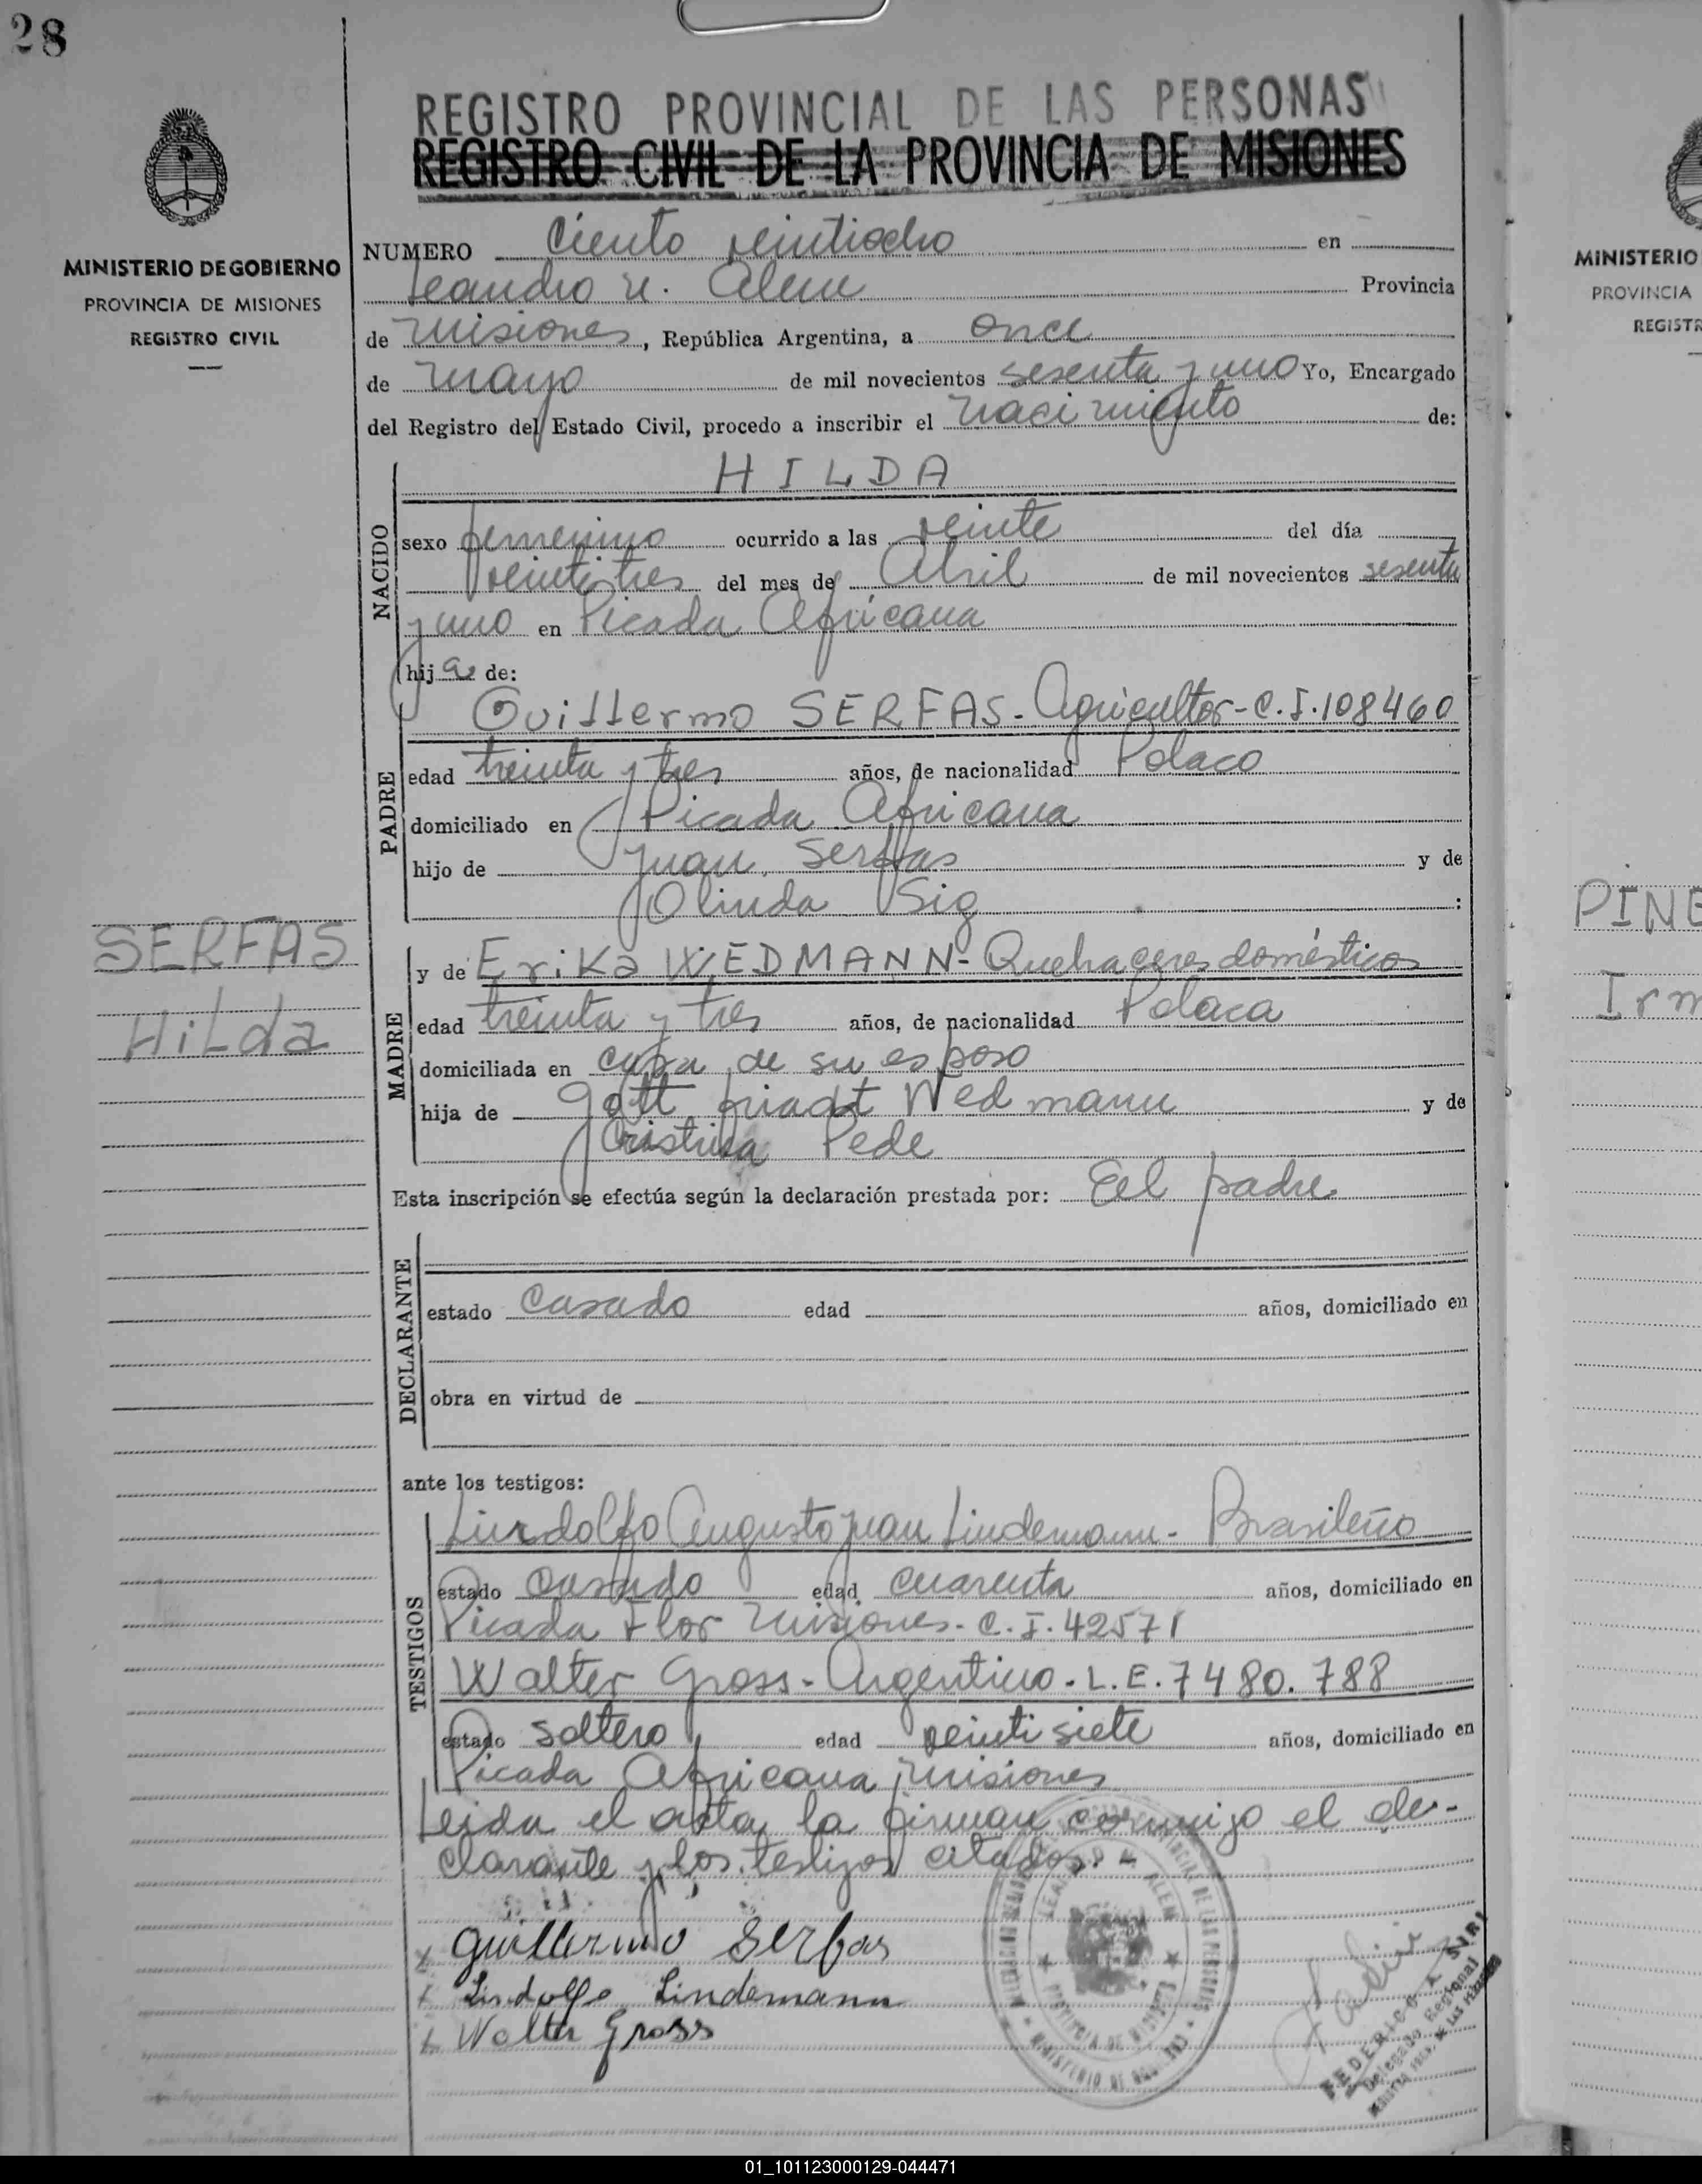 28
REGISTRO PROVINCIAL DE LAS PERSONAS
REGISTRO CIVIL DE LA PROVINCIA DE MISIONES
MINISTERIO DE GOBIERNO
PROVINCIA DE MISIONES
REGISTRO CIVIL
NUMERO Ciento veintiocho en
Leandro N. Alem Provincia
de Misiones, República Argentina, a once
de mayo de mil novecientos sesenta y uno Yo, Encargado
del Registro del Estado Civil, procedo a inscribir el nacimiento de:
NACIDO
HILDA
sexo femenino ocurrido a las veinte del día
veintitres del mes de Abril de mil novecientos sesenta
y uno en Picada Africana
hija de:
PADRE
Guillermo SERFAS - Agricultor - C.I. 108460
edad treinta y tres años, de nacionalidad Polaco
domiciliado en Picada Africana
hijo de Juan Serfas y de
Olinda Sig :
SERFAS
Hilda
MADRE
y de Erika WEDMANN - Quehaceres domésticos
edad treinta y tres años, de nacionalidad Polaca
domiciliada en casa de su esposo
hija de Gott Wedmann y de
Cristina Pede
Esta inscripción se efectúa según la declaración prestada por: Eel padre
DECLARANTE
estado Casado edad años, domiciliado en
obra en virtud de
ante los testigos:
TESTIGOS
Lindolfo Augusto Juan Lindemann - Brasileño
estado casado edad cuarenta años, domiciliado en
Picada Flor Misiones - C.I. 42571
Walter Gross - Argentino - L.E. 7480.788
estado soltero edad veinti siete años, domiciliado en
Picada Africana Misiones
Leida el acta la firman conmigo el de-
clarante y los testigos citados. -
Guillermo Serfas
Lindolfo Lindemann
Walter Gross
LEANDRO N. ALEM
PROVINCIA DE MISIONES
MINISTERIO DE GOBIERNO
FEDERICO A.
Delegado Regional
MINISTERIO
PROVINCIA
REGISTR
PINE
Irm
01_101123000129-044471